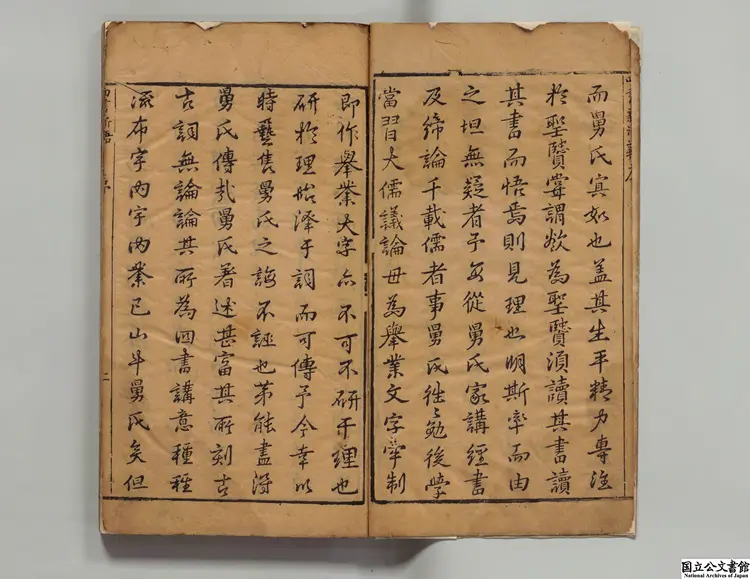 而舅氏寘如也蓋其生平精力專注
於聖贒嘗謂欲為聖贒須讀其書讀
其書而悟焉則見理也明斯率而由
之坦無疑者予每從舅氏家講經書
及締論千載儒者事舅氏徃〻勉後學
當習大儒議論毋為舉業文字牽制
即作舉業文字亦不可不研于理也
研於理始澤于詞而可傳予今幸以
時藝售舅氏之誨不誣也苐能盡得
舅氏傳哉舅氏著述甚富其所刻古
古詞無論論其所為四書講意種種
流布宇內宇內業已山斗舅氏矣但
序
二
国立公文書館
National Archives of Japan